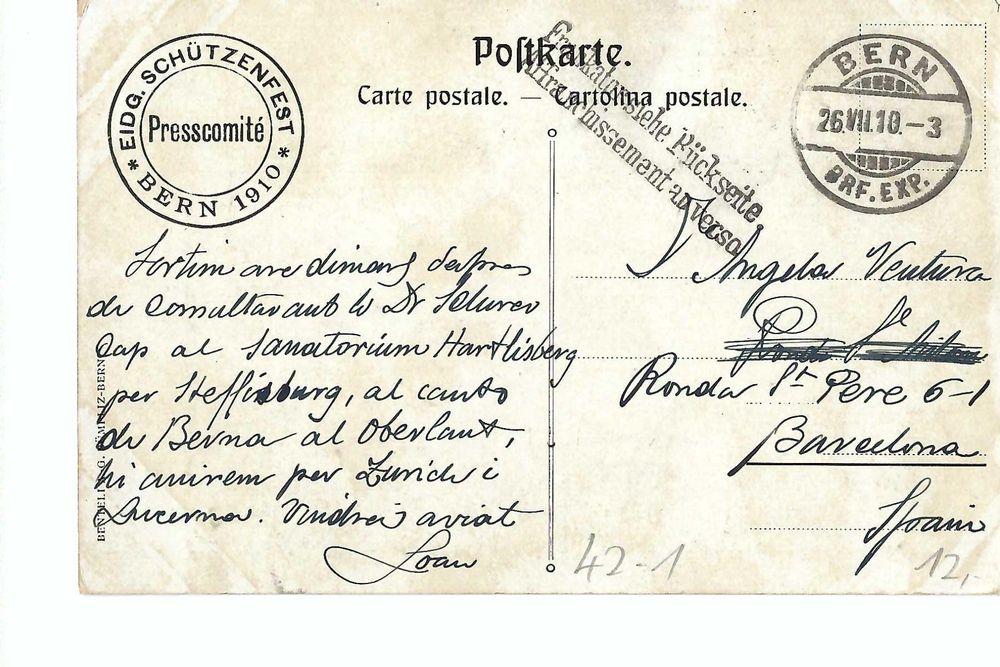 Postkarte.
Carte postale. — Cartolina postale.
* EIDG. SCHÜTZENFEST *
BERN 1910
Presscomité
Frankatur siehe Rückseite.
Affranchissement au verso.
BERN
26.VII.10.–3
BRF. EXP.
Sortim are dimars després
de consultar amb lo Dr
cap al Sanatorium Hartlisberg
per Steffisburg, al cantó
de Berna al Oberlant,
hi anirem per Zurich i
Lucerna. Vindré aviat
Joan
Angela Ventura
Ronda St Pere 6-1
Barcelona
Spain
42-1
12,-